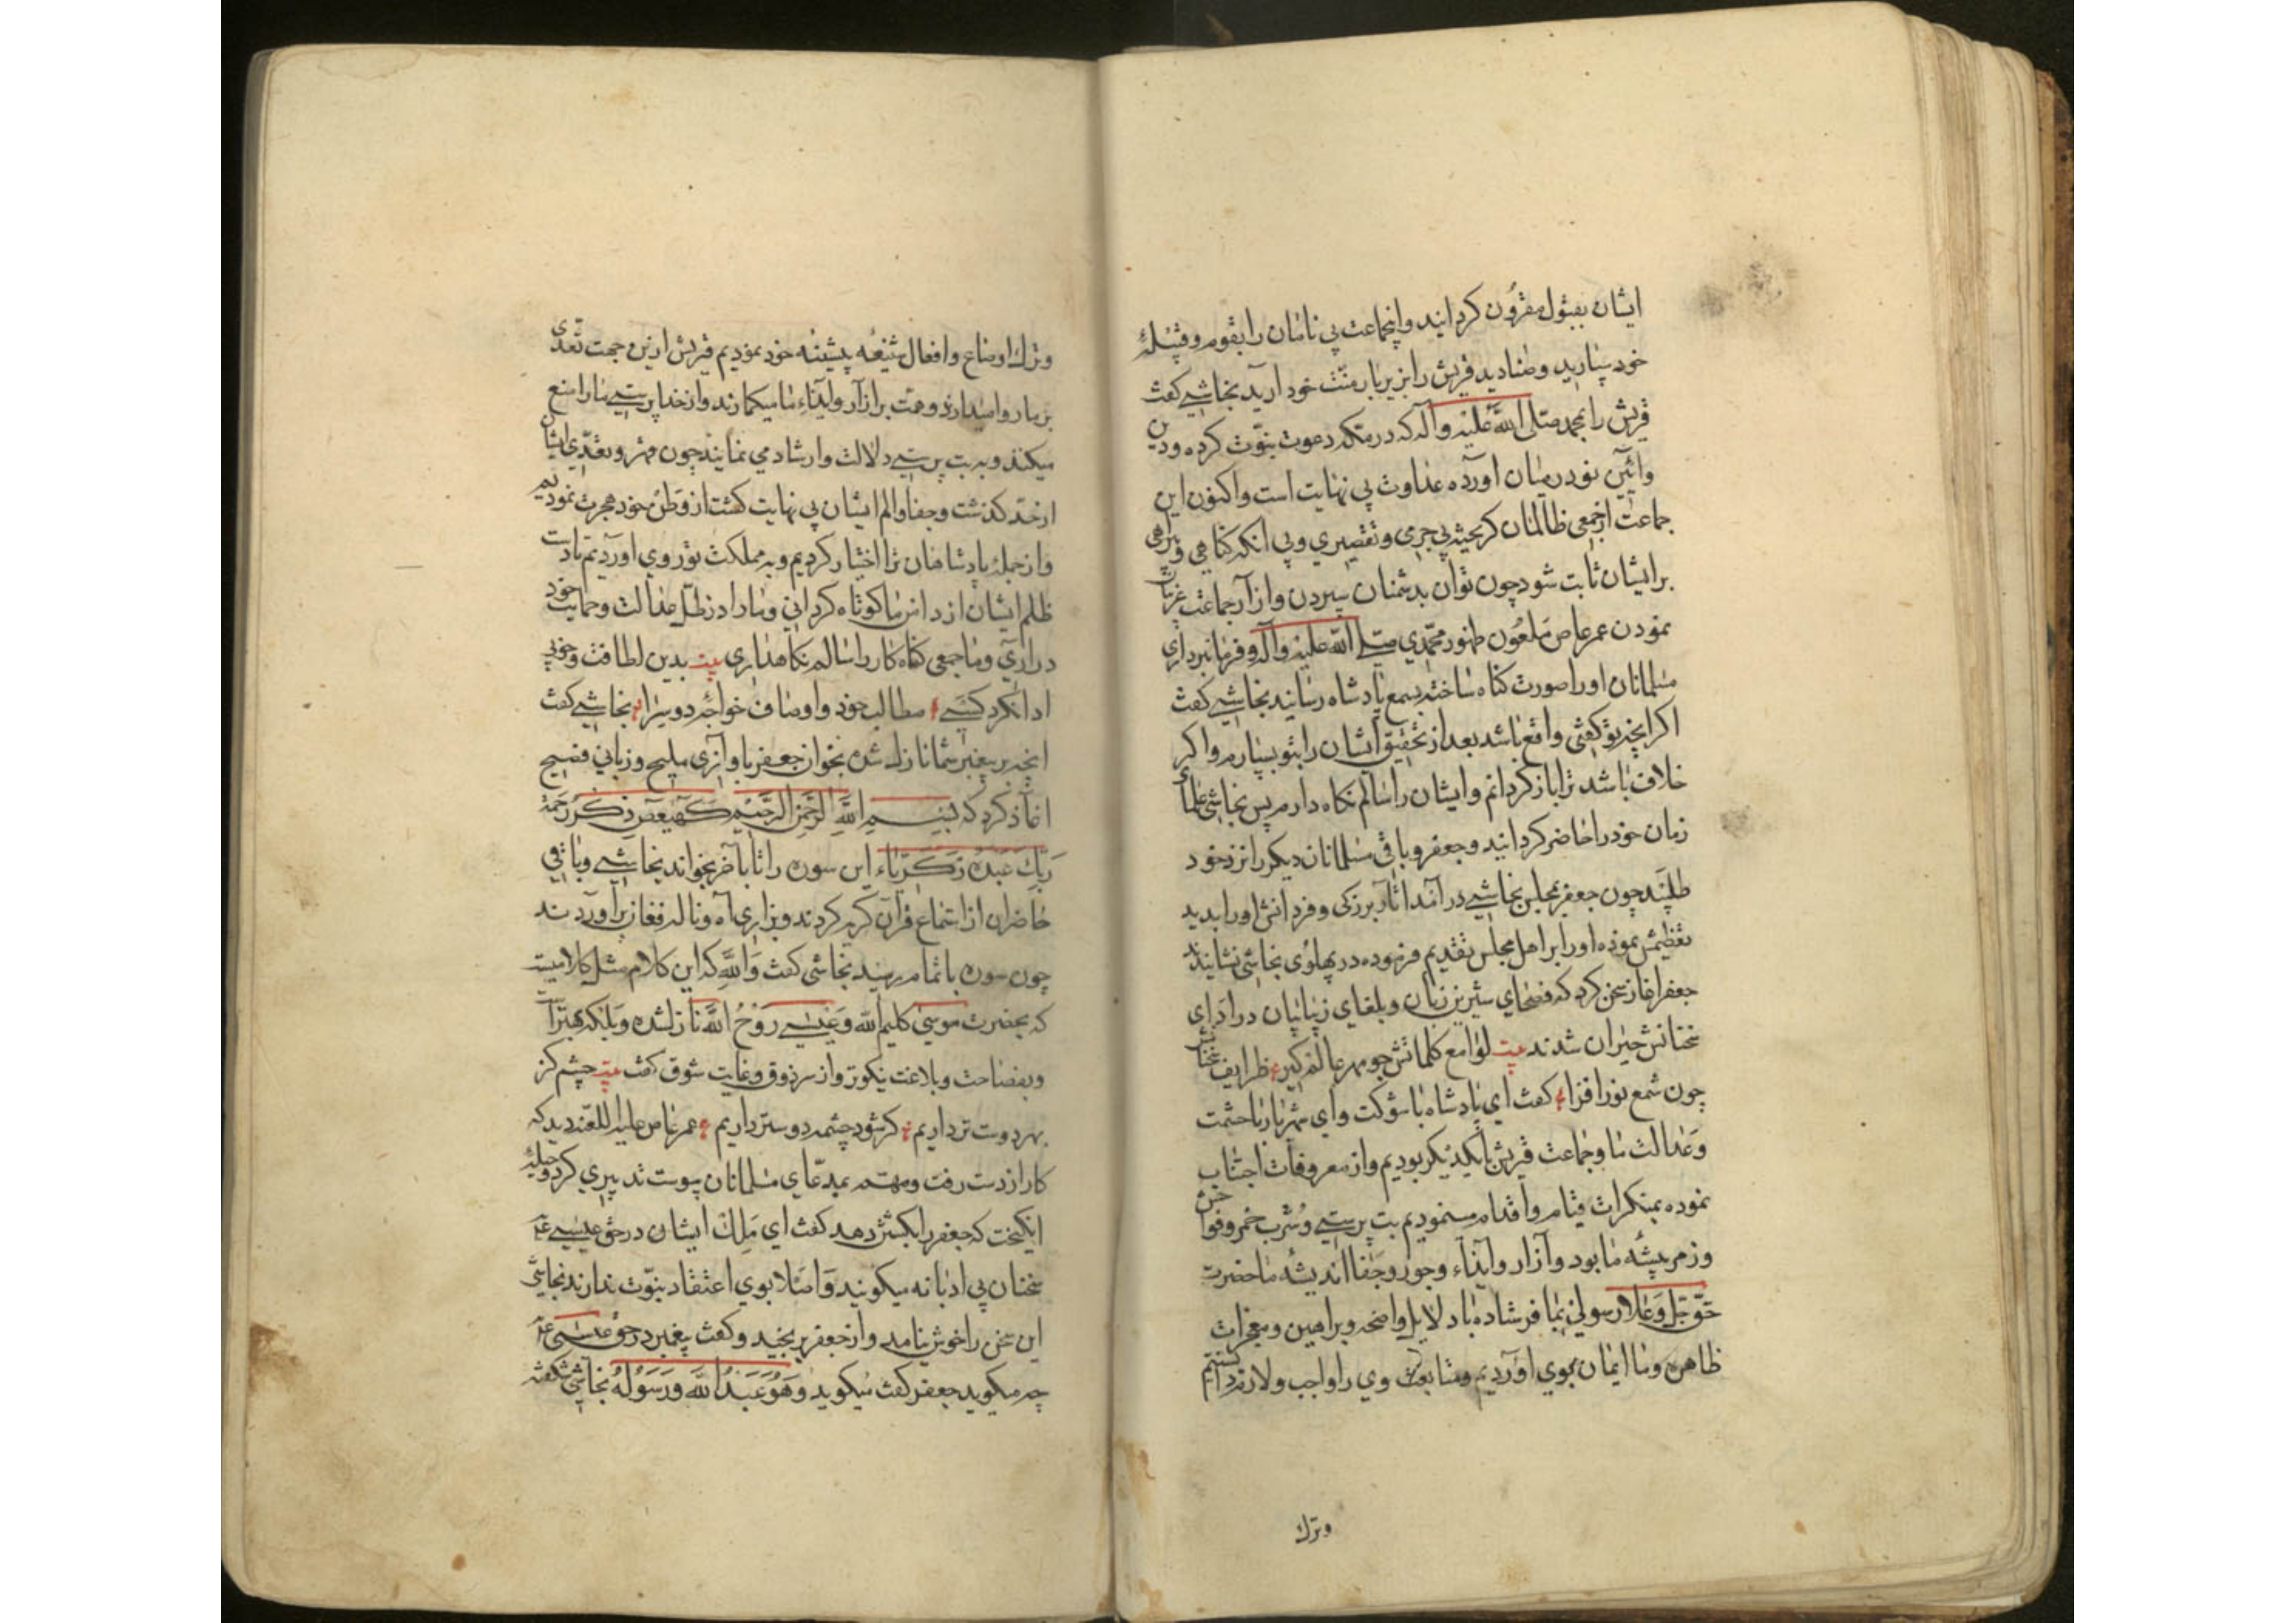 ایشان بقبول مقرون کردانید و اینجماعت بی نامان را بقوم و قبیلهٔ
خود سپارید و صنادید قریش را بزیر بار منّت خود ارید نجاشی کفت
قریش را بمحمد صلی الله علیه و آله که در مکه دعوت نبوّت کرده و دین
و ائین نو در میان اورده عداوت بی نهایت است و اکنون این
جماعت از جمعی ظالمان کریخته بی جرمی و تقصیری و بی انکه کناهی و
بر ایشان ثابت شود چون توان بدشمنان سپردن و از آن جماعت
نمودن عمر عاص ملعون ظهور محمّدی صلی الله علیه و آله و فرمانبرداری
مسلمانان او را صورت کناه ساخته بسمع پادشاه رسانید نجاشی کفت
اکر انچه تو کفتی واقع باشد بعد از تحقیق ایشان را بتو بسپارم و اکر
خلاف باشد ترا باز کردانم و ایشان را سالم نکاه دارم پس نجاشی علمای
زمان خود را حاضر کردانید و جعفر و باقی مسلمانان دیکر را نزد خود
طلبید چون جعفر بمجلس نجاشی در آمد اثار بزرکی و فر دانش او را بدید
تعظیمش نموده او را بر اهل مجلس تقدیم فرموده در پهلوی نجاشی نشانیدند
جعفر اغاز سخن کرد که فصحای شیرین زبان و بلغای زیبا بیان در ادای
سخنانش حیران شدند بیت لوامع کلماتش چو مهر عالم کیر ظرایف سخنانش
چون شمع نور افزا کفت ای پادشاه با شوکت و ای شهریار با حشمت
و عدالت ما و جماعت قریش با یکدیکر بودیم و از معروفات اجتناب
نموده بمنکرات قیام و اقدام مینمودیم بت پرستی و شرب خمر و فواحش
وزمر پیشه ما بود و آزار و ایذاء و جور و جفا اندیشه ما حضرت
حق جل و علا رسولی بما فرستاده با دلایل واضحه و براهین و معجزات
ظاهره و ما ایمان بوی اوردیم و متابعت وی را واجب و لازم دانستیم
وترک
وترک اوضاع و افعال شنیعه پیشینه خود نمودیم قریش ازین جهت تعدی
بر ما روا میدارند و همت بر ازار و ایذاء ما میکمارند و از خدا پرستی ما را منع
میکنند و به بت پرستی دلالت و ارشاد می نمایند چون قهر و تعدّی ایشان
از حد کذشت و جفا و الم ایشان بی نهایت کشت از وطن خود هجرت نمودیم
و از جمله پادشاهان ترا اختیار کردیم و به مملکت تو روی اوردیم تا دست
ظلم ایشان از دامن ما کوتاه کردانی و ما را در ظلّ عدالت و حمایت خود
در ارى و ما جمعی کناه کار را سالم نکاهداری بیت بدین لطافت و خوبی
ادا نکرد کسی مطالب خود و اوصاف خواجه دو سرا نجاشی کفت
انچه بر پیغمبر شما نازل شده بخوان جعفر با وازی ملیح و زبانی فصیح
اغاز کرد که بسم الله الرحمن الرحیم کهیعص ذکر رحمة
ربک عبده زکریاء این سوره را تا باخر بخواند نجاشی و باقی
حاضران از استماع قرآن کریه کردند و بزاری آه و ناله و فغان بر آوردند
چون سوره باتمام رسید نجاشی کفت والله که این کلام مثل کلامیست
که بحضرت موسی کلیم الله و عیسی روح الله نازلشده و بلکه بهتر است
و بفصاحت و بلاغت نیکوتر و از سر ذوق و غایت شوق کفت بیت چشم کز
بهر دوست تر داریم کر شود چشمه دوستر داریم عمر عاص علیه اللعنه دید که
کار از دست رفت و مهم بمدّعای مسلمانان پیوست تدبیری کرد و حیلهٔ
انکیخت که جعفر را بکشتن دهد کفت ای مَلِک ایشان در حق عیسی ع
سخنان بی ادبانه میکویند و اصلا بوی اعتقاد نبوّت ندارند نجاشی
این سخن را خوش نیامد و از جعفر برنجید و کفت پیغمبر در حق عیسی ع
چه میکوید جعفر کفت میکوید وَهُوَ عَبْدُ الله وَرَسُوْلُهُ نجاشی